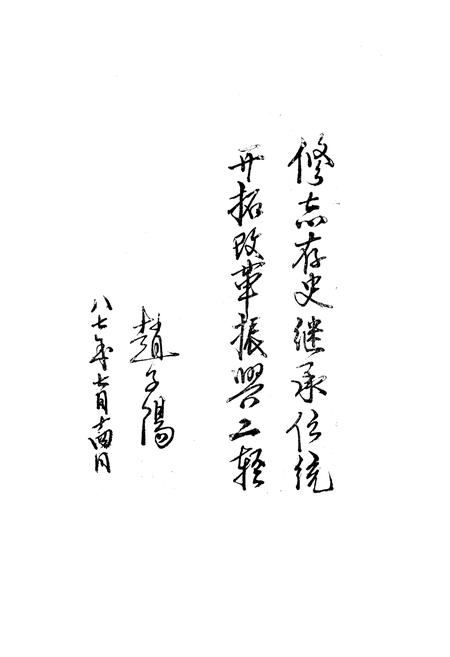 修志存史继承传统
开拓改革振兴二轻
趙子陽
八七年七月十四日